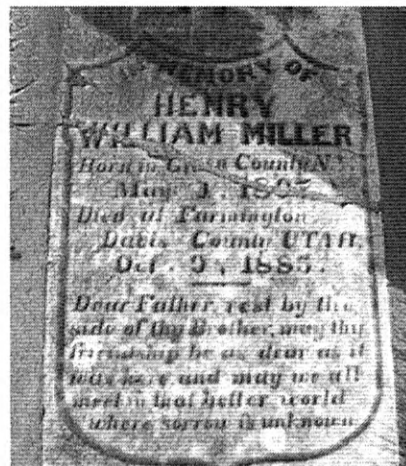 IN MEMORY OF
HENRY
WILLIAM MILLER
Born in County N
May 1, 180
Died in Farmington
Davis County UTAH.
Oct. 9, 1885.
Dear Father, rest by the
side of thy Brother, may thy
friendship be as dear as it
was here, and may we all
meet in that better world
where sorrow is unknown